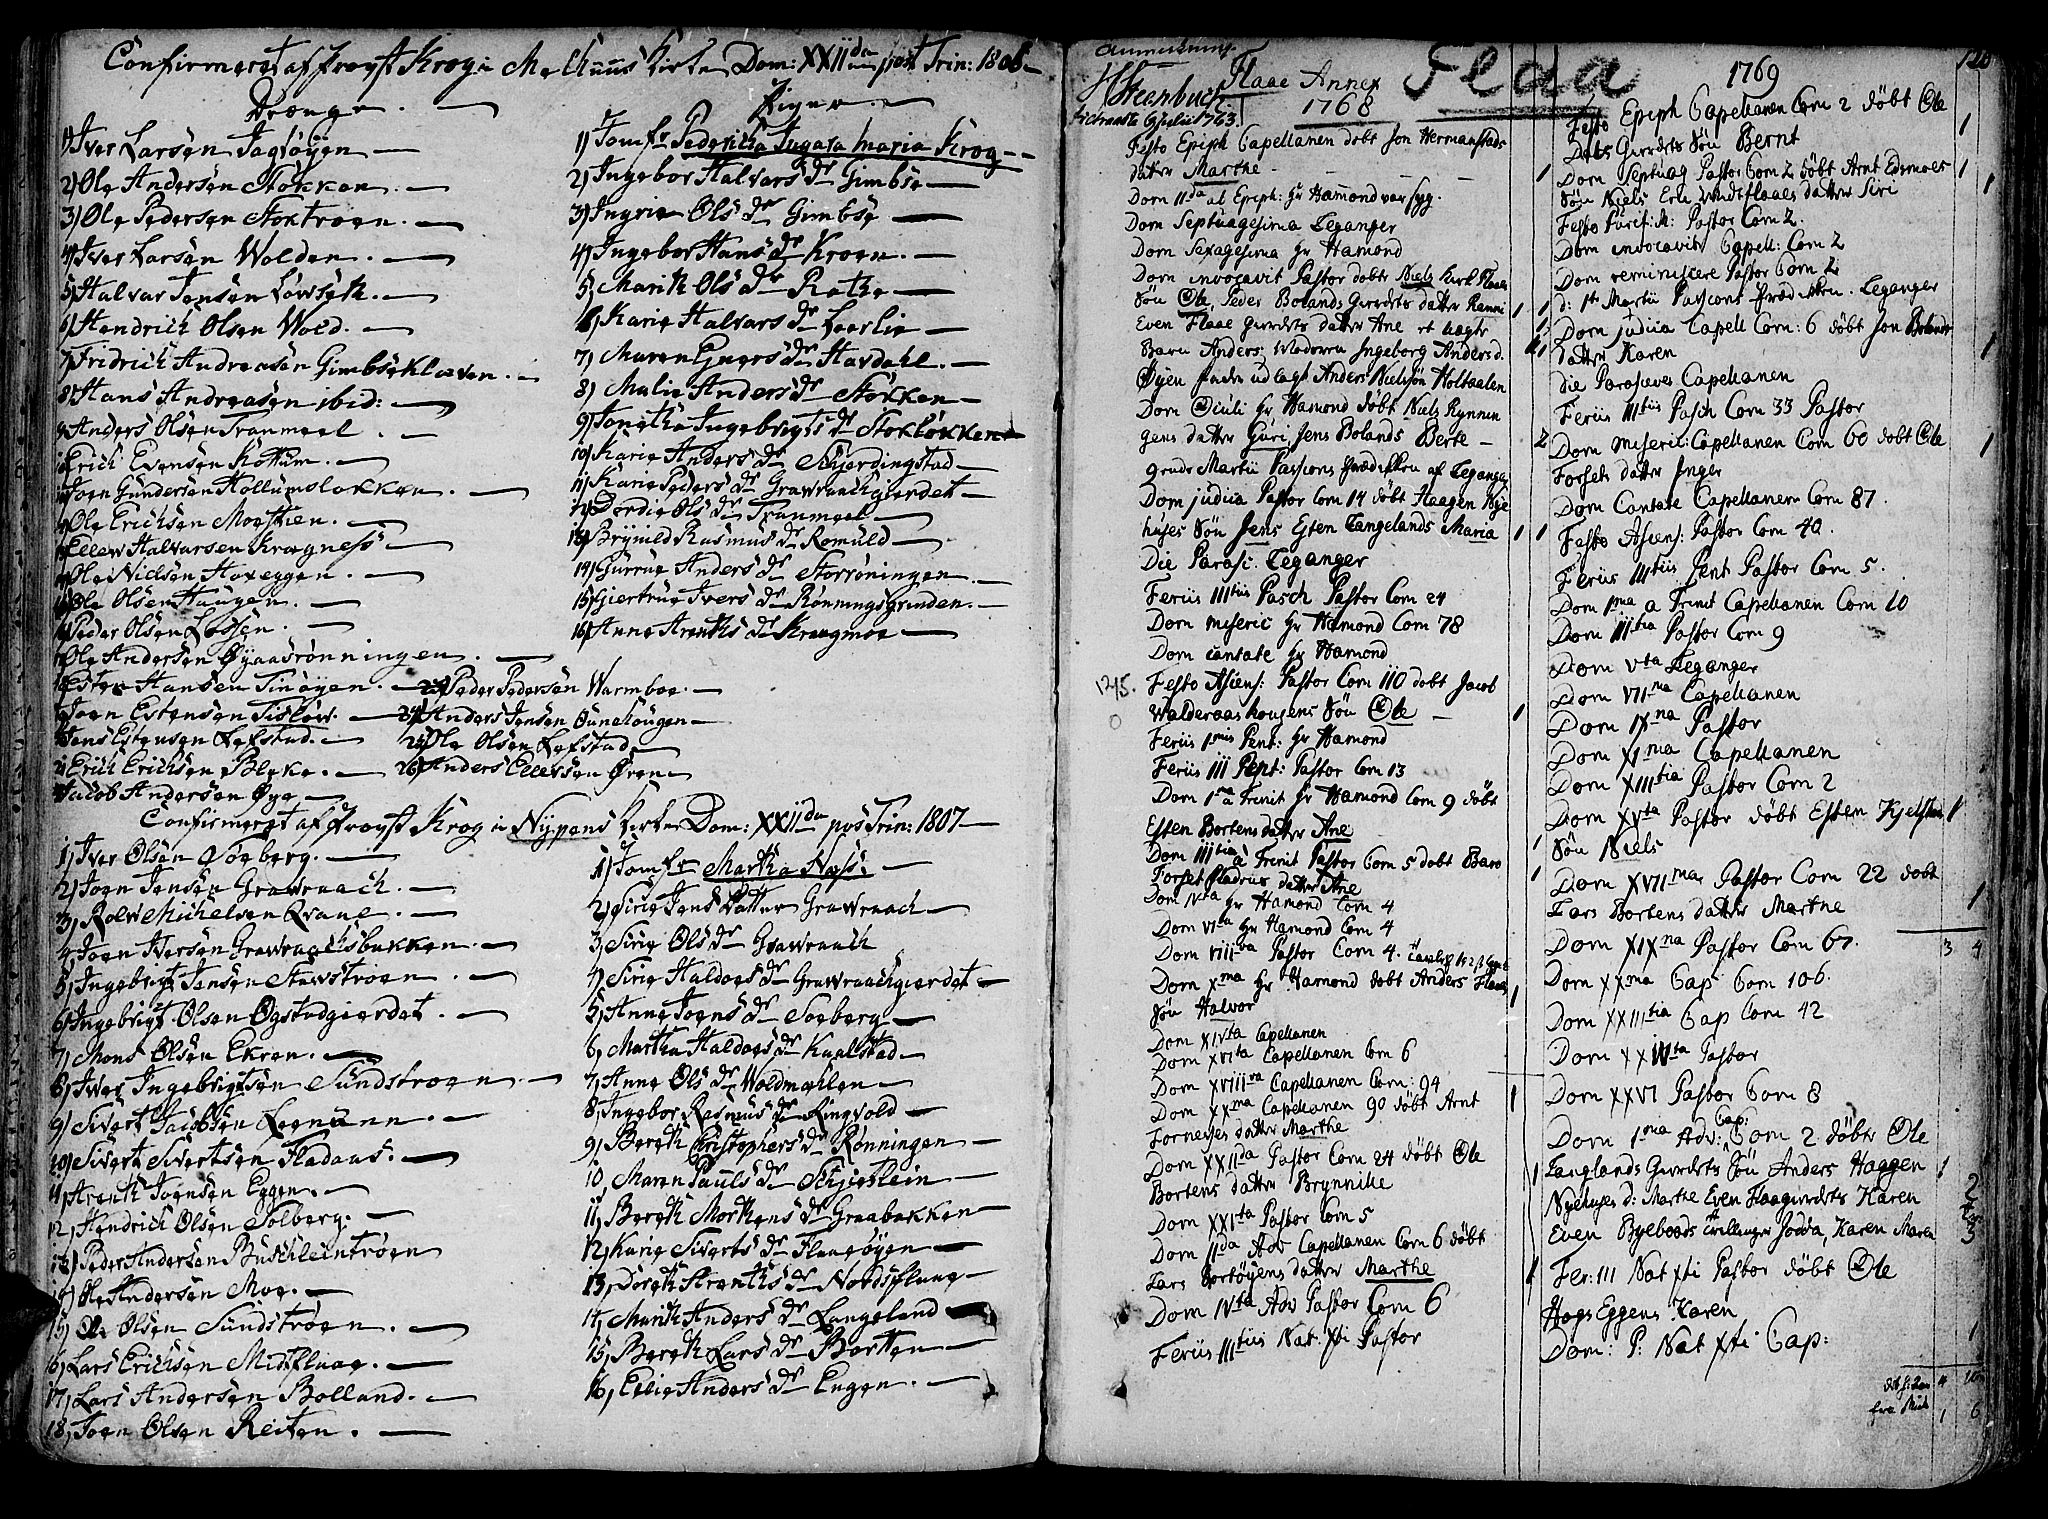 Confirmeret af Provst Krog i Melhuus Kirke Dom: XXIIda post Trin: 1806
Drenge
1) Iver Larsen Jagtøyen
2) Ole Andersen Stokken
3) Ole Pedersen Stoktroen
4) Iver Larsen Wolden
5) Halvar Jensen Løvseth
6) Hendrich Olsen Wold
7) Fridrich Andreasen Gimbsekleven
8) Hans Andreasen ibid:
9) Anders Olsen Tranmeel
10) Erich Evensen Kottum
11) Joen Gundersen Hollumsløkken
12) Ole Erichsen Moesthen
13) Ellew Halvarsen Krogness
14) Ole Nielsen Hoxeggen
15) Ole Olsen Haugen
16) Peder Olsen Lossen
17) Ole Andersen Øyaasrønningen
18) Esten Hansen Tinøyen
19) Joen Estensen Tisløv
20) Jens Estensen Løfstad
21) Erich Erichsen Bleke
22) Jacob Andersen Øye
23) Peder Pedersen Warmboe
24) Anders Jensen Sunehougen
25) Ole Olsen Løfstad
26) Anders Ellevsen Øren
Piger
1) Jomfr Pedericha Ingara Maria Krog
2) Ingebor Halvars dr Gimbse
3) Ingrie Ols dr Gimbse
4) Ingebor Hans dr Kroen
5) Marith Ols dr Rathe
6) Karie Halvars dr Leerlie
7) Maren Ejners dr Havdahl
8) Malie Anders dr Stokken
9) Jonetha Ingebrigts dr Stokløkken
10) Karie Anders dr Skjerdingstad
11) Karie Peders dr Grawraachgierdet
12) Dordie Ols dr Tranmeel
13) Brynild Rasmus dr Romuld
14) Gurrue Anders dr Storrøningen
15) Giertrue Ivers dr Rønningsgrinden
16) Anne Arenths dr Kroegmoe
Confirmeret af Provst Krog i Nypens Kirke Dom: XXIIda pos Trin: 1807
1) Iver Olsen Søeberg
2) Joen Jensen Grawraach
3) Rolv Michelsen Qvaul
4) Joen Iversen Grawraachsbakken
5) Ingebrigt Jensen Stavstroen
6) Ingebrigt Olsen Øgstadgierdet
7) Mons Olsen Ekren
8) Iver Ingebrigtsen Sundstroen
9) Sivert Jacobsen Leemann
10) Sivert Sivertsen Fladaas
11) Arenth Joensen Eggen
12) Hendrich Olsen Solberg
13) Peder Andersen Buskleintroen
14) Ole Andersen Moe
15) Ole Olsen Sundstroen
16) Lars Erichsen Midflaae
17) Lars Andersen Bolland
18) Joen Olsen Reiten
1) Jomfr Martha Næss
2) Sirie Jens Datter Grawraach
3) Sirie Ols dr Grawraach
4) Sirie Haldoes dr Grawraachgierdet
5) Anne Joens dr Soeberg
6) Martha Haldoes dr Kaalstad
7) Anne Ols dr Woldmoehlen
8) Ingebor Rasmus dr Ringvold
9) Bereth Christophers dr Rønningen
10) Maren Pauls dr Skjerstein
11) Bereth Morthens dr Graabakken
12) Karie Siverts dr Flaaeøyen
13) Doreth Arenths dr Nordsflaae
14) Marith Anders dr Langeland
15) Bereth Lars dr Borten
16) Ellie Anders dr Engen
Anmerkning
H Steenbuch
tiltraadte 6 Julii 1763
Flaae Annex
Flaa
1768
Festo Epiph Capellanen døbt Jon Hermanstads
datter Marthe
Dom IIda at Epiph: hr Hamond var syg
Dom Septuagesima Leganger
Dom Sexagesima hr Hamond
Dom invocavit Pastor døbte Niels Kirk Flaaes
Søn Ole, Peder Bolands Gierdets datter Ranni
Even Flaae Gierdets datter Ane et uægte
Barn Anders: Moderen Ingeborg Andersd.
Øyen Fader udlagt Anders Nielsøn Holtaalen
Dom Oculi hr Hamond døbt Niels Rynnin
gens datter Guri Jens Bolands Berte
9ende Martii Passions Prædikken af Leganger
Dom judica Pastor Com 14 døbt Haagen Nye
huses Søn Jens Esten Langelands Maria
Die Parasc: Leganger
Feriis IIItiis Pasch Pastor Com 24
Dom miseric hr Hamond Com 78
Dom cantate hr Hamond
1245.
Festo Asiens: Pastor Com 110 døbt Jacob
Walderaashougens Søn Ole
Feriis 1mis Pent: hr Hamond
Feriis III Pent: Pastor Com 13
Dom 1ma a Trinit hr Hamond Com 9 døbt
Esten Bortens datter Ane
Dom IIItia a Trinit Pastor Com 5 døbt Baro
Forset Fladrus datter Ane
Dom Vta hr Hamond Com 4
Dom VIta hr Hamond Com 4
Dom VIIIva Pastor Com 4.
Dom Xma hr Hamond døbt Anders Flaaes
Søn Halvor
Dom XIVta Capellanen
Dom XVIta Capellanen Com 6
Dom XVIIIva Capellanen Com: 94
Dom XXma Capellanen 90 døbt Arnt
Fornesses datter Marthe
Dom XXIIda Pastor Com 24 døbt Ole
Bortens datter Brynnilie
Dom XXIVta Pastor Com 5
Dom IIda Adv Capellanen Com 6 døbt
Lars Bortøyens datter Marthe
Dom IVta Adv Pastor Com 6
Feriis IIItiis Nat: Xti Pastor
1769
Festo Epiph Capellanen Com 2 døbt Ole
Dals Gierdets Søn Bernt
Dom Septuag Pastor Com 2 døbt Arnt Edsmoes
Søn Niels Erik Windsflaaes datter Siri
Festo Purif: M: Pastor Com 2.
Dom invocavit Capell: Com 2
Dom reminiscere Pastor Com 2
d: 1te Martii Passions Prædikken. Leganger
Dom judica Capell Com: 6 døbt Jon Bolands
datter Karen
Die Parasceves Capellanen
Feriis IIItiis Pasch Com 33 Pastor
Dom miseric: Capellanen Com 60 døbt Ole
Forsets datter Inger
Dom Cantate Capellanen Com 87.
Festo Asiens: Pastor Com 40.
Feriis IIItiis Pent Pastor Com 5.
Dom 1ma a Trinit Capellanen Com 10
Dom IIItia Pastor Com 9
Dom Vta Leganger
Dom VIIma Capellanen
Dom IXna Pastor
Dom XIma Capellanen
Dom XIIItia Pastor Com 2
Dom XVta Pastor døbt Esten Kjelstad
Søn Niels
Dom XVIIma Pastor Com 22 døbt
Lars Bortens datter Marthe
Dom XIXna Pastor Com 67.
3 4
Dom XXma Cap Com 106.
Dom XXIIItia Cap Com 42
Dom XXIVta Pastor
Dom XXVI Pastor Com 8
Dom 1ma Adv: Cap: Com 2. døbte Ole
Langlands Gierdets Søn Anders Haggen
Nyehuses d: Marthe Even Flaagierdets Karen
Even Byeboads tvillinger Jodda, Karen Maren
Fer: III Nat Xti Pastor døbt Ole
Hogs Eggens Karen
Dom: P: Nat Xti Cap:
4 10
fra Mich 1 6